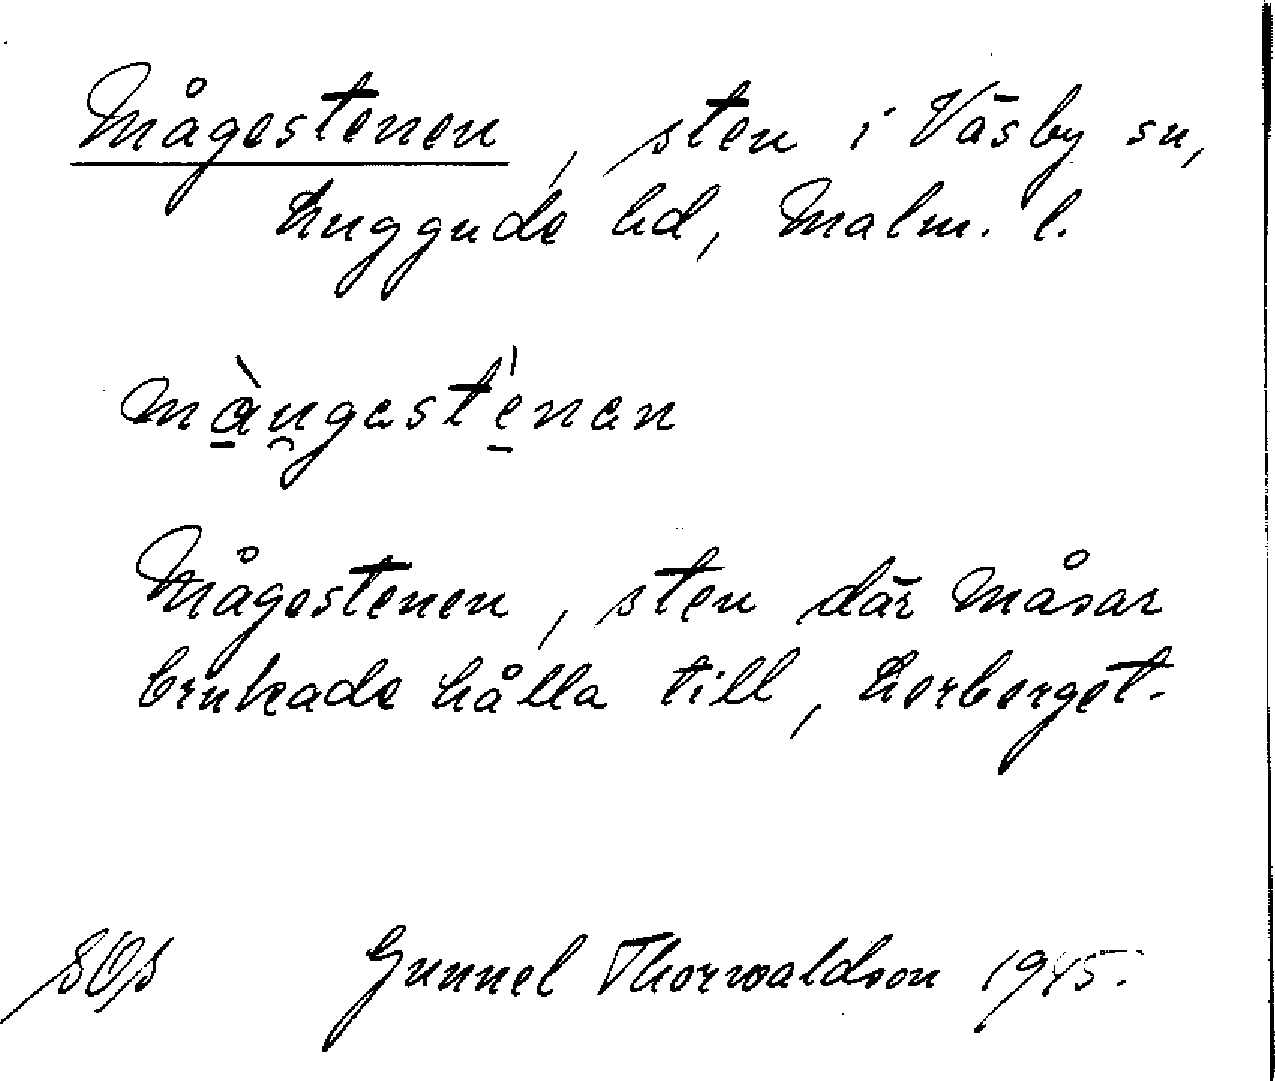 Mågestenen, sten i Väsby sn,
Luggude hd, Malm. l.
màu̯gastenan
Mågestenen, sten där måsar
brukade hålla till, Lerberget.
SOS Gunnel Thorwaldson 1945.